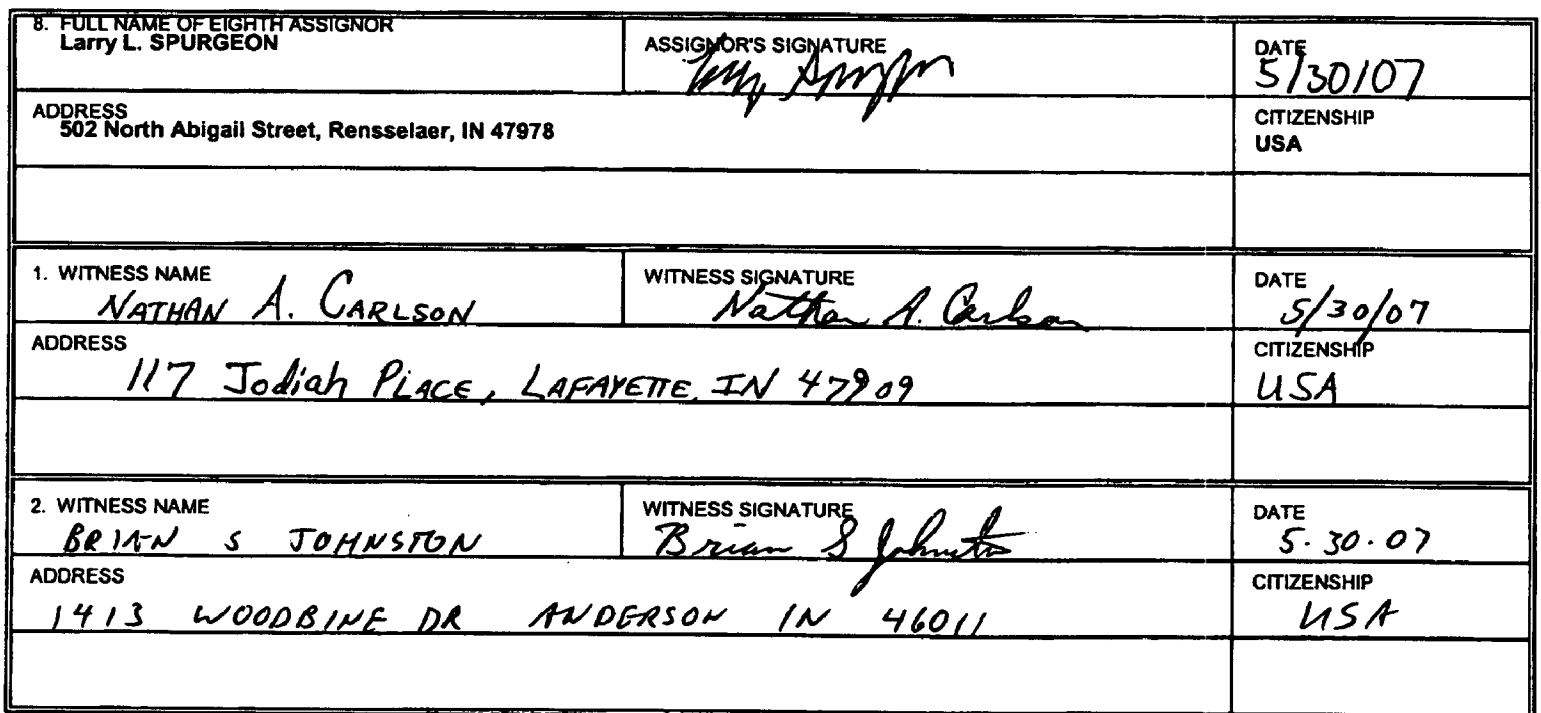 8. FULL NAME OF EIGHTH ASSIGNOR
Larry L. SPURGEON
ASSIGNOR'S SIGNATURE
DATE
5/30/07
ADDRESS
502 North Abigail Street, Rensselaer, IN 47978
CITIZENSHIP
USA
1. WITNESS NAME
NATHAN A. CARLSON
WITNESS SIGNATURE
Nathan A. Carlson
DATE
5/30/07
ADDRESS
117 Jodiah PLACE, LAFAYETTE, IN 47909
CITIZENSHIP
USA
2. WITNESS NAME
BRIAN S JOHNSTON
WITNESS SIGNATURE
Brian S Johnston
DATE
5.30.07
ADDRESS
1413 WOODBINE DR ANDERSON IN 46011
CITIZENSHIP
USA